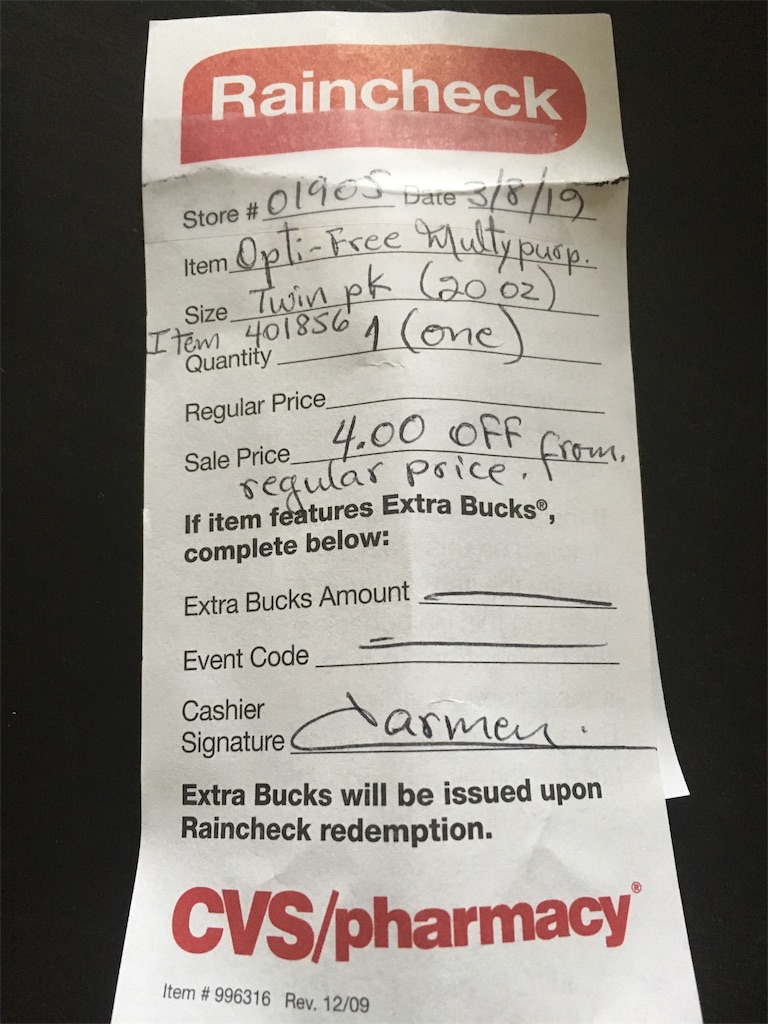 Raincheck
Store # 01905 Date 3/8/19
Item Opti-Free Multypurp.
Size Twin pk (20 oz)
Item 401856
Quantity 1 (one)
Regular Price
Sale Price 4.00 OFF from.
regular price.
If item features Extra Bucks®,
complete below:
Extra Bucks Amount
Event Code
Cashier
Signature Carmen.
Extra Bucks will be issued upon
Raincheck redemption.
CVS/pharmacy®
Item # 996316 Rev. 12/09